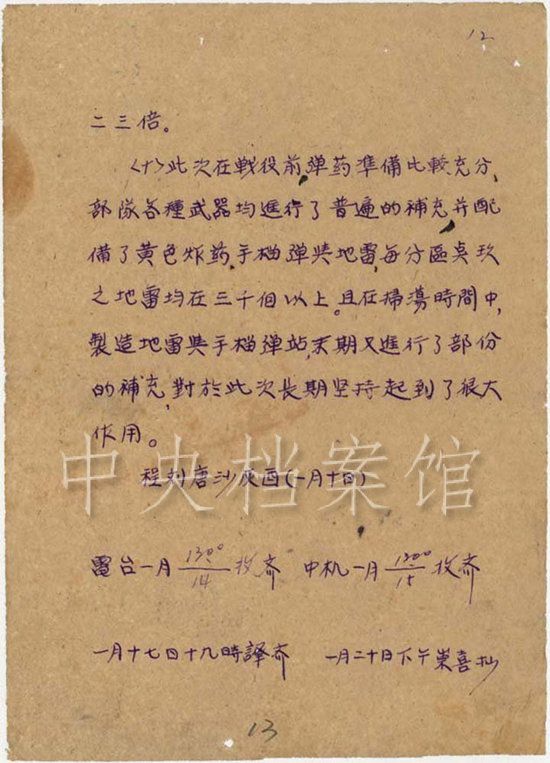 12
二三倍。
<十>此次在戰役前弹药準備比較充分,
部隊各種武器均進行了普遍的補充并配
備了黄色炸药,手榴弹與地雷,每分區
之地雷均在三千個以上。且在掃蕩時間中,
製造地雷與手榴弹站,末期又進行了部份
的補充,對於此次長期坚持起到了很大
作用。
中央档案馆
程刘唐沙灰酉(一月十日)
電台一月1300/14收齐 中机一月1300/15收齐
一月十七日十九時譯齐 一月二十日下午崇喜抄
13